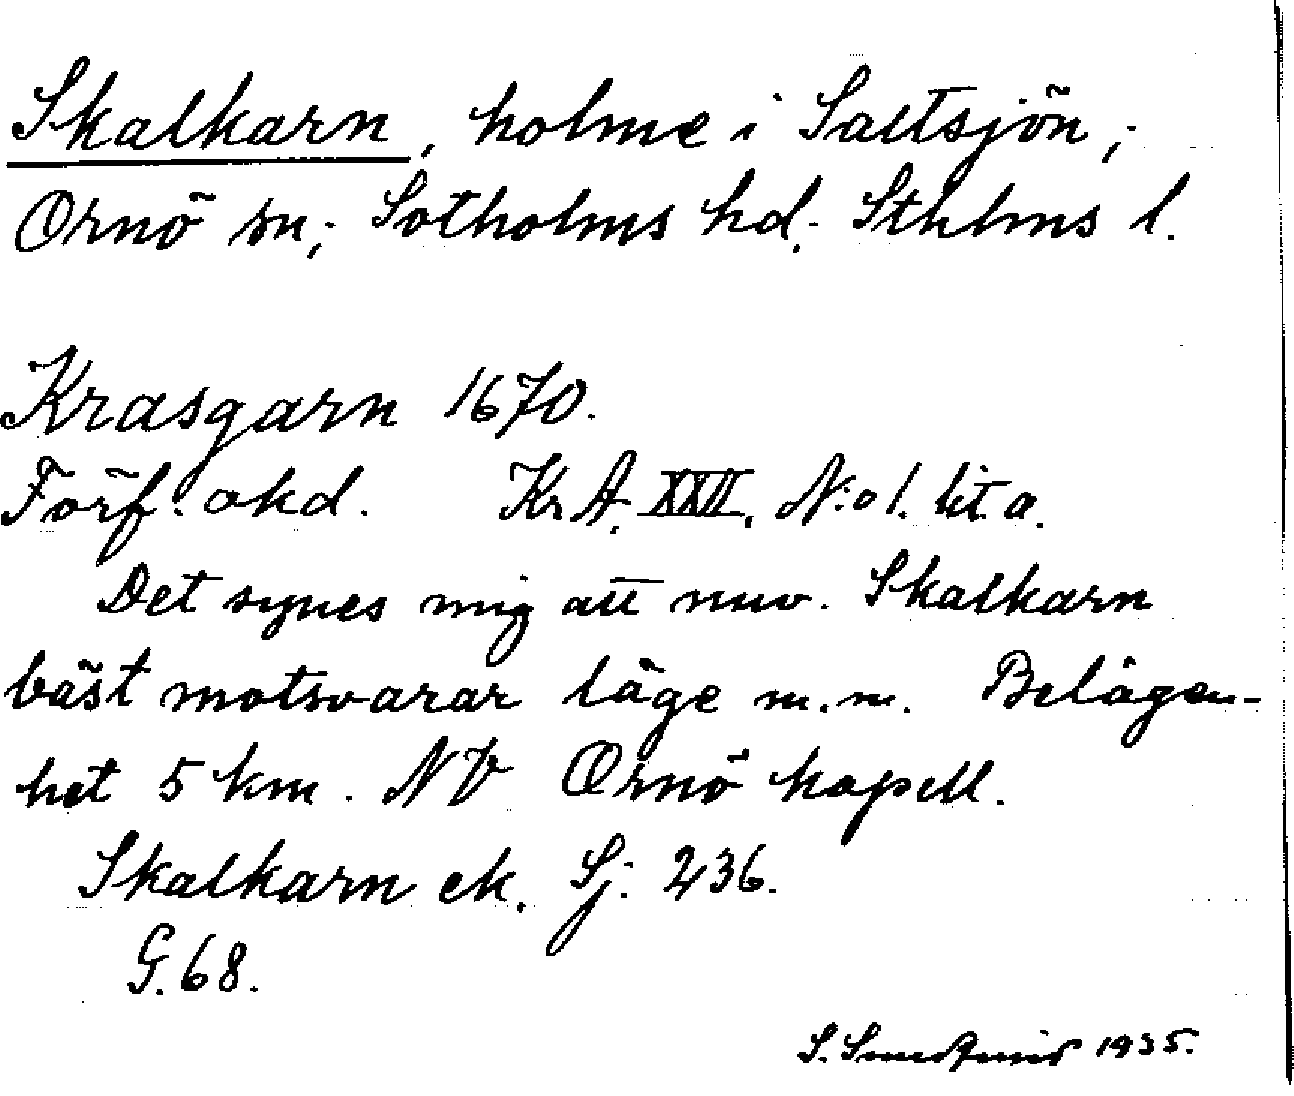 Skalkarn, holme i Saltsjön,
Ornö sn, Sotholms hd. Sthlms l.
Krasgarn 1670.
Förf. okd. Kr A. XXII. N:o 1. lit a.
Det synes mig att nuv. Skalkarn
bäst motsvarar läge m.m. Belägen-
het 5 km. NV Ornö kapell.
Skalkarn ek. Sj. 236.
G. 68.
S. 1935.